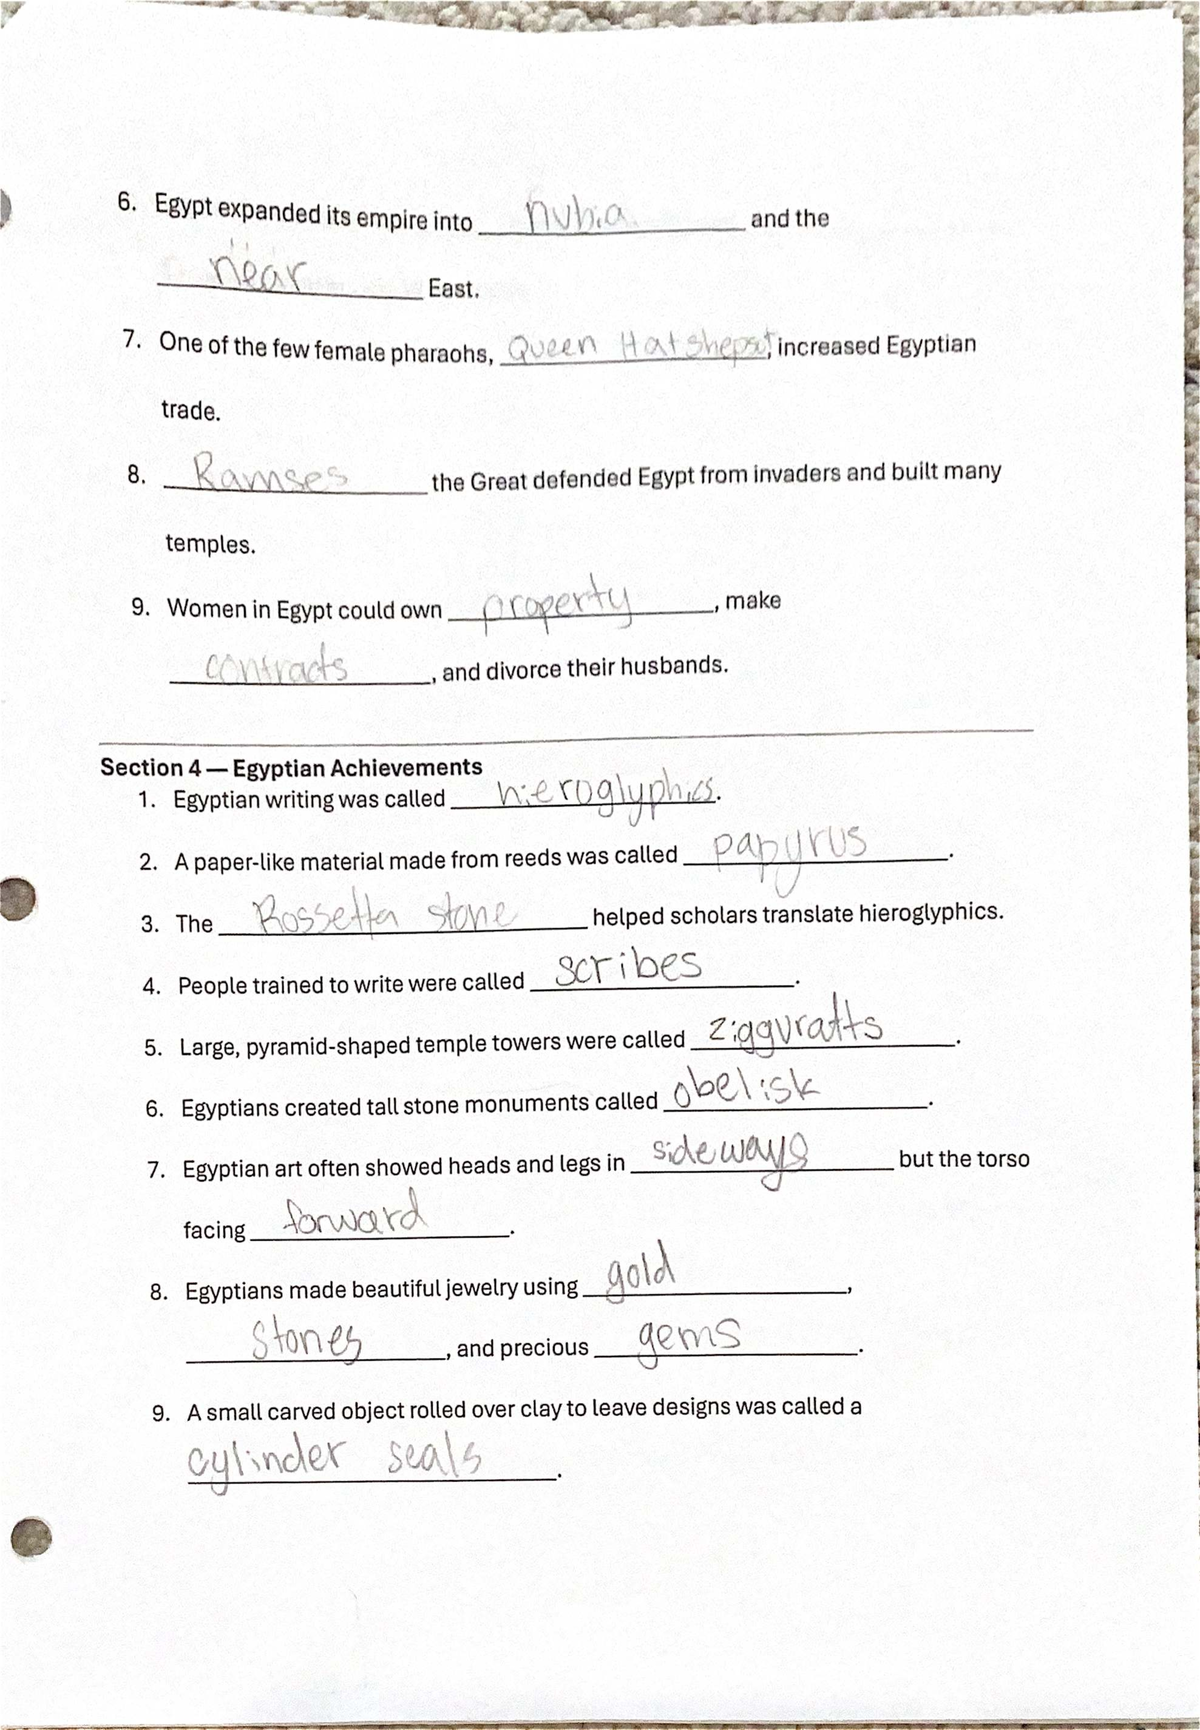 6. Egypt expanded its empire into nubia and the
near East.
7. One of the few female pharaohs, Queen Hatshepsut, increased Egyptian
trade.
8. Ramses the Great defended Egypt from invaders and built many
temples.
9. Women in Egypt could own property, make
contracts, and divorce their husbands.
Section 4 — Egyptian Achievements
1. Egyptian writing was called hieroglyphics.
2. A paper-like material made from reeds was called papyrus.
3. The Rossetta stone helped scholars translate hieroglyphics.
4. People trained to write were called scribes.
5. Large, pyramid-shaped temple towers were called zigguratts.
6. Egyptians created tall stone monuments called obelisk.
7. Egyptian art often showed heads and legs in sideways but the torso
facing forward.
8. Egyptians made beautiful jewelry using gold,
stones, and precious gems.
9. A small carved object rolled over clay to leave designs was called a
cylinder seals.